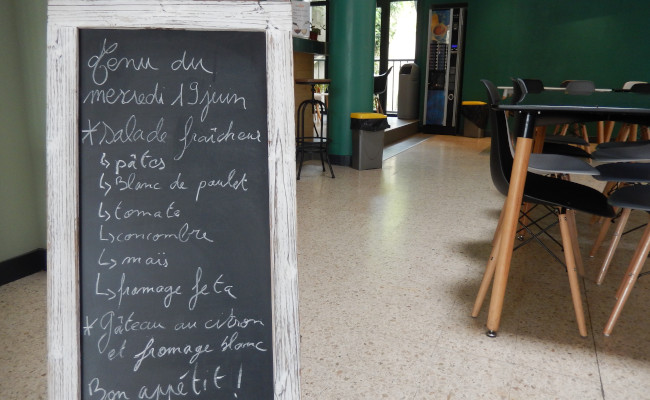 Menu du
mercredi 19 juin
* Salade fraîcheur
↳ pâtes
↳ Blanc de poulet
↳ tomate
↳ concombre
↳ maïs
↳ fromage feta
* Gâteau au citron
et fromage blanc
Bon appétit !